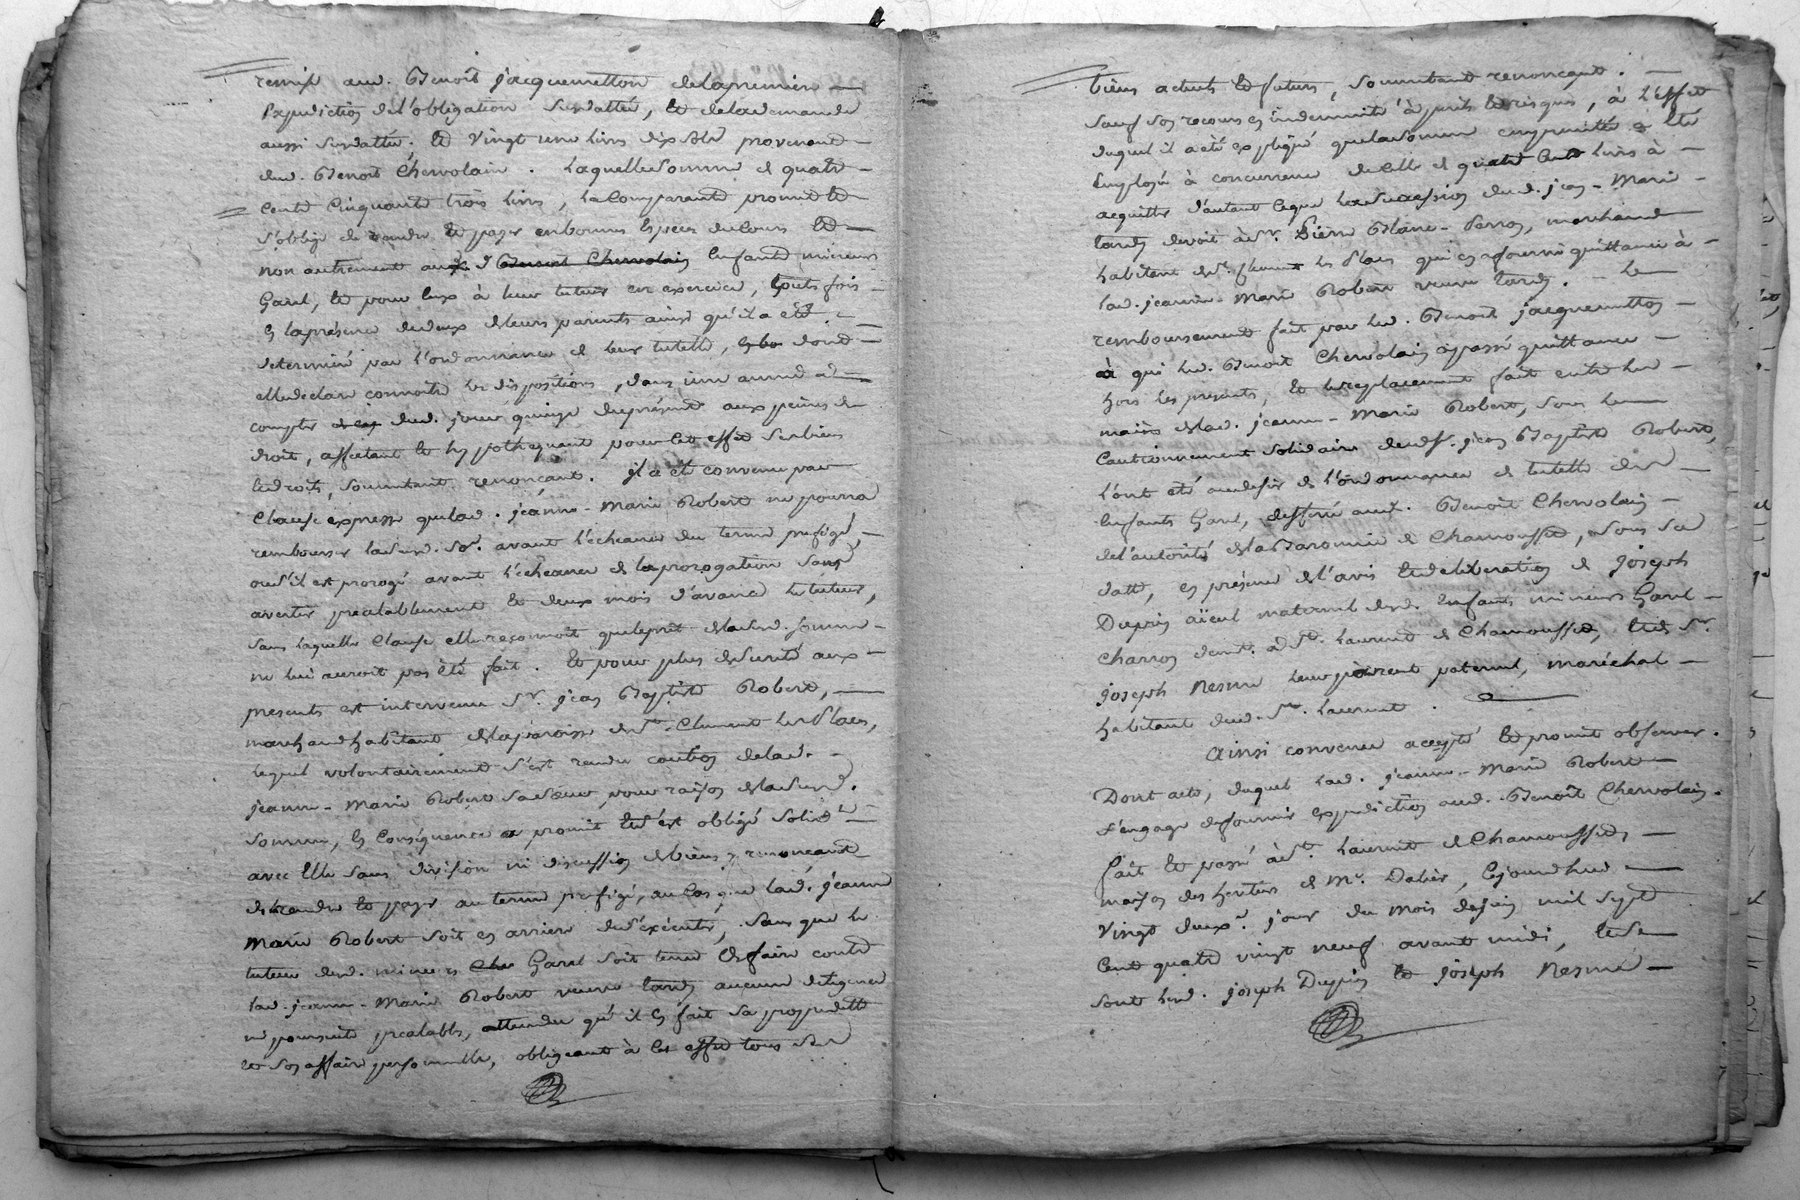 remise aud. Benoit jacquemetton delapremiere
Expedition del'obligation susdattée, et delademande
aussi susdattée. et vingt une livre dix sols provenant
dud. Benoit Chervolain. Laquelle somme de quatre
Cents Cinquante trois livres, la Comparante promet et
s'oblige de rendre et payer en bonnes Especes de Cours et
non autrement aux d Benoit Chervolain Enfants mineurs
Garel, et pour Eux à leur tuteur en exercice, toutefois
En laprésence de deux deleurs parents ainsi qu'il a été
determiné par l'ordonnance de leur tutelle, dont
elle declare connoitre les dispositions, dans une année à
compter dud. jour quinze duprésent aux peines de
droit, affectant et hypothequant pour Cet effet ses biens
et droits, soumettant renonçant. il a été convenu par
Clause expresse que lad. jeanne-Marie Robert ne pourra
rembourser lasusd. Soe. avant l'écheance du terme prefigé,
ou s'il est prorogé avant l'écheance de la prorogation sans
avertir prealablement et deux mois d'avance le tuteur,
sans laquelle Clause elle reconnoit que le pret de lasusd. somme
ne lui auroit pas été fait. Et pour plus desureté aux
presents est intervenu Sr. jean Baptiste Robert,
marchand habitant de la paroisse de St. Clement les Places,
lequel volontairement s'est rendu caution de lad.
jeanne-Marie Robert sa sœur, pour raison de lasusd.
somme, En Conséquence a promis et s'est obligé solide.
avec Elle sans division ni discussion de biens y renonçant
de rendre et payer au terme prefigé, au Cas que lad. jeanne
Marie Robert soit en arriere de s'exécuter, sans que le
tuteur desd. mineurs Garel soit tenu de faire contre
lad. jeanne-Marie Robert veuve tardy aucune diligence
ni poursuite prealable, attendu qu'il en fait sa propre dette
et son affaire personnelle, obligeant à Cet effet tous ses
biens actuels et futurs, soumettant renonçant.
sauf son recours en indemnité à perils et risques, à l'effet
duquel il a été expliqué que la somme empruntée a été
Employée à concurrence de Celle de quatre Cents livres à
acquitter d'autant Ceque la succession dud. jean-Marie
tardy devoit à Sr. Pierre Blaise-Perron, marchand
habitant de St. Clement les Places qui en a fourni quittance à
lad. jeanne-Marie Robert veuve tardy. Le
remboursement fait par led. Benoit jacquemetton
à qui led. Benoit Chervolain a passé quittance
hors les presents, et le replacement fait entre les
mains delad. jeanne-Marie Robert, sous le
Cautionnement solidaire dud. Sr. jean Baptiste Robert,
l'ont été au desir de l'ordonnance de tutelle des
Enfants Garel, defferée aud. Benoit Chervolain
de l'autorité de la Baronnie de Chamousset, sous sa
datte, en présence de l'avis et deliberation de Joseph
Dupin aïeul maternel desd. enfants mineurs Garel
Charron demt. à St. Laurent de Chamousset, et de Sr.
Joseph Nesme leur parent paternel, maréchal
habitant dud. St. Laurent.
Ainsi convenu accepté et promis observer.
Dont acte, duquel lad. jeanne-Marie Robert
s'engage de fournir expedition aud. Benoit Chervolain.
fait et passé à St. Laurent de Chamousset,
maison des heritiers de Me. Dalier, Cejourdhui
vingt deuxe. jour du mois de juin mil sept
Cent quatre vingt neuf avant midi, et se
sont led. joseph Dupin et joseph Nesme